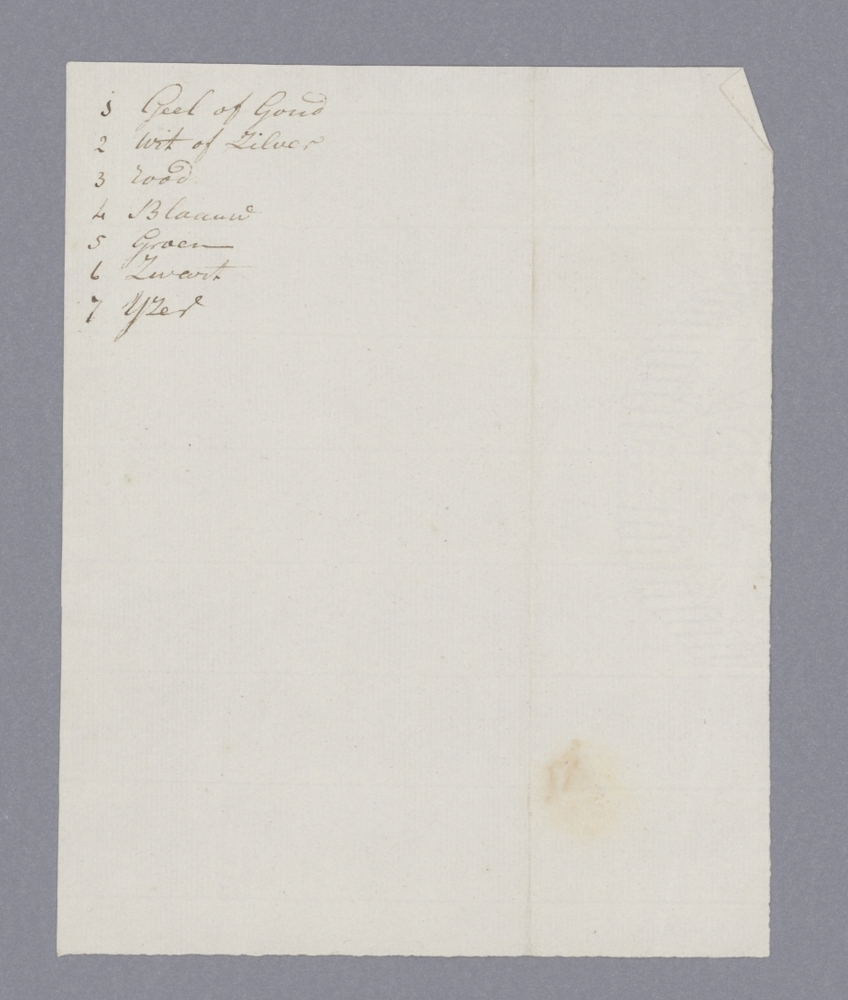 1 Geel of Goud
2 Wit of Zilver
3 rood
4 Blaauw
5 Groen
6 Zwart
7 Yzer